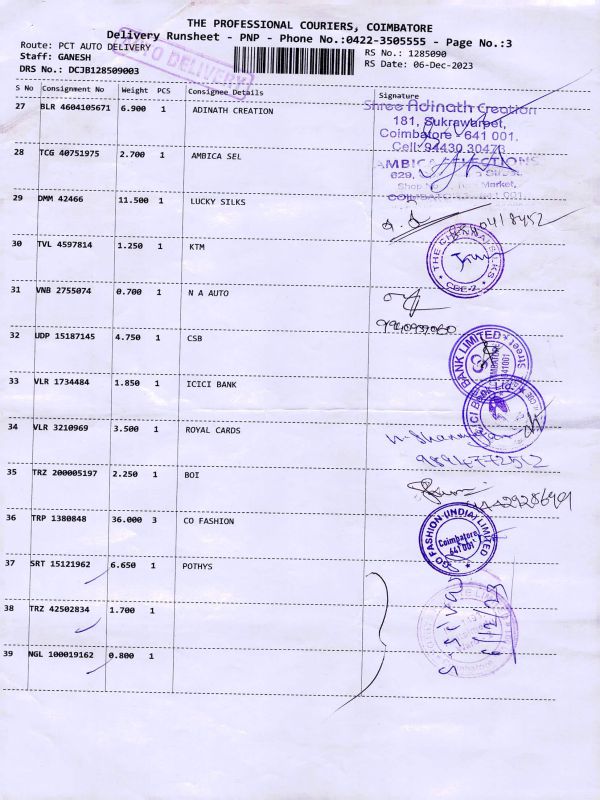 THE PROFESSIONAL COURIERS, COIMBATORE
Delivery Runsheet - PNP - Phone No.:0422-3505555 - Page No.:3
Route: PCT AUTO DELIVERY
RS No.: 1285090
Staff: GANESH
RS Date: 06-Dec-2023
DRS No.: DCJB128509003
AUTO DELIVERY
S No Consignment No Weight PCS Consignee Details Signature
27 BLR 4604105671 6.900 1 ADINATH CREATION
Shree Adinath Creation
181, Sukrawarpet,
Coimbatore - 641 001.
Cell: 94430 30473
28 TCG 40751975 2.700 1 AMBICA SEL
629,
Market,
29 DMM 42466 11.500 1 LUCKY SILKS
30 TVL 4597814 1.250 1 KTM
CBE-2
31 VNB 2755074 0.700 1 N A AUTO
32 UDP 15187145 4.750 1 CSB
BANK LIMITED
Street
33 VLR 1734484 1.850 1 ICICI BANK
34 VLR 3210969 3.500 1 ROYAL CARDS
9894772512
35 TRZ 200005197 2.250 1 BOI
36 TRP 1380848 36.000 3 CO FASHION
GO FASHION (INDIA) LIMITED
Coimbatore
641 001
37 SRT 15121962 6.650 1 POTHYS
38 TRZ 42502834 1.700 1
39 NGL 100019162 0.800 1
6/12/23